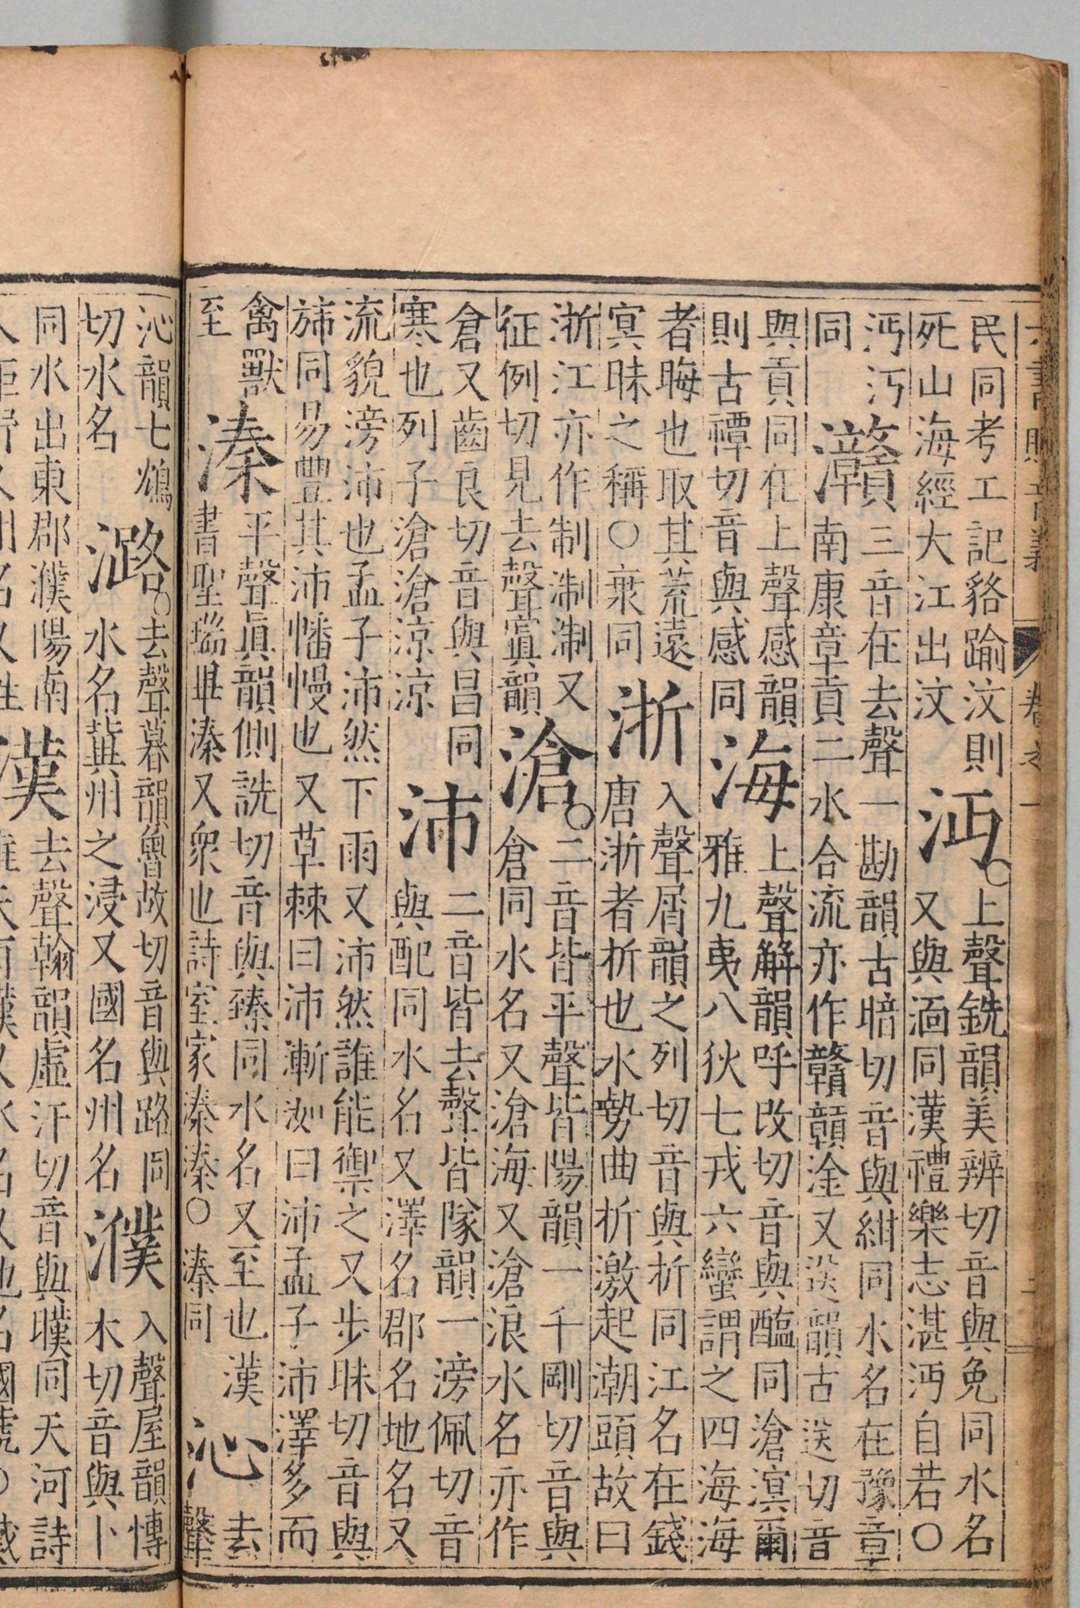 六書 賦音義 卷之一
民同考工記貉踰汶則
死山海經大江出汶
沔
○上聲銑韻美辨切音與免同水名
又與湎同漢禮樂志湛沔自若○
沔沔
同
灨
三音在去聲一勘韻古暗切音與紺同水名在豫章
南康章貢二水合流亦作贛淦又送韻古送切音
與貢同在上聲感韻
則古禫切音與感同
海
上聲解韻呼改切音與醢同滄溟爾
雅九夷八狄七戎六蠻謂之四海海
者晦也取其荒遠
冥昧之稱○衆同
浙
入聲屑韻之列切音與折同江名在錢
唐浙者折也水勢曲折激起潮頭故曰
浙江亦作制淛制又
征例切見去聲寘韻
滄
○二音皆平聲皆陽韻一千剛切音與
倉同水名又滄海又滄浪水名亦作
倉又齒良切音與昌同
寒也列子滄滄涼涼
沛
二音皆去聲皆隊韻一滂佩切音
與配同水名又澤名郡名地名又
流貌滂沛也孟子沛然下雨又沛然誰能禦之又步昧切音與
斾同易豐其沛幡幔也又草棘曰沛漸洳曰沛孟子沛澤多而
禽獸
至
溱
平聲眞韻側詵切音與臻同水名又至也漢
書聖瑞畢溱又衆也詩室家溱溱○溱同
沁
去
聲
沁韻七鴆
切水名
潞
○去聲暮韻魯故切音與路同
水名冀州之浸又國名州名
濮
入聲屋韻博
木切音與卜
同水出東郡濮陽南
漢
去聲翰韻虛汗切音與暵同天河詩